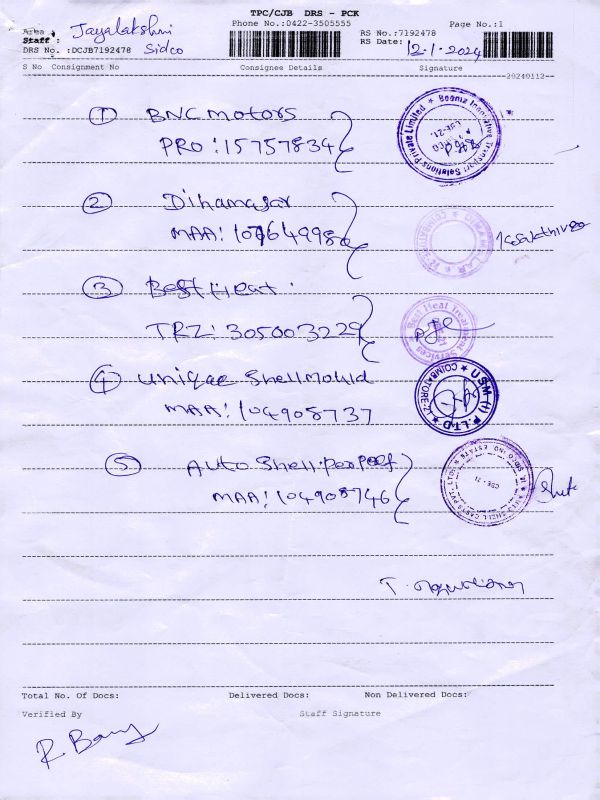 TPC/CJB DRS - PCK
Phone No.:0422-3505555
Page No.:1
Area : Jayalakshmi
Staff : Sidco
DRS No. :DCJB7192478
RS No.:7192478
RS Date: 12-1-2024
S No Consignment No Consignee Details Signature
20240112
1 BNC motors
PRO: 15757834
Beamz Inovative Transport Solutions Private Limited
2
MAA:
3 Best Heat
TRZ: 305003229
Best Heat Treatment Services
4 Unique Shell Mould
MAA: 104908737
USM (I) P. LTD
COIMBATORE-21
5 Auto Shell
MAA: 104908746
CBE - 21
Total No. Of Docs: Delivered Docs: Non Delivered Docs:
Verified By Staff Signature